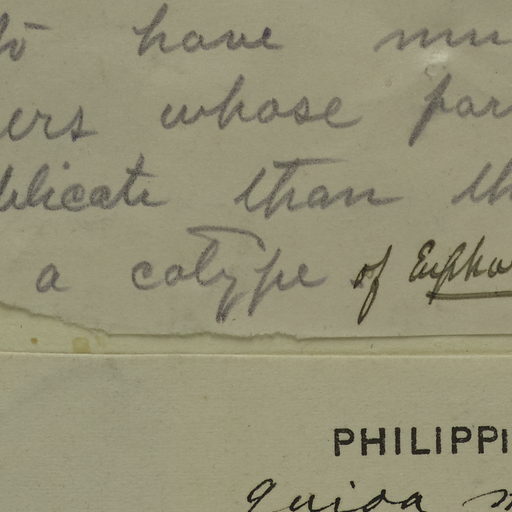 to have mu
ers whose par
delicate than th
a cotype of Eupho
PHILIPPI
guioa m